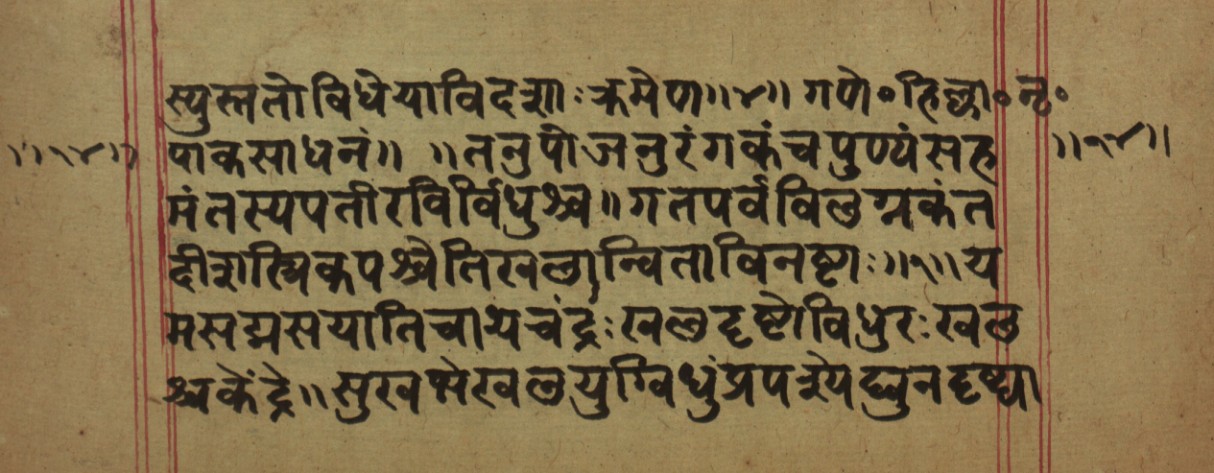 स्युस्ततो विधेया विदशाः क्रमेण॥४॥ गणे॰हिल्ला॰नृ॰
॥१४॥ पाकसाधनं॥ ॥तनुपो जनुरंगकं च पुण्यं सह ॥१४॥
मंतस्यपती रविर्विधुश्च॥गतपर्वविलग्नकं त
दीशस्त्रिकपश्चेति खलान्विता विनष्टाः॥१॥य
मसद्मसयातिचाथ चंद्रः खलदृष्टो विधुरः खल
श्च केंद्रे॥सुखभे खलयुग्विधुं प्रपश्येद्द्युनदृष्ट्या